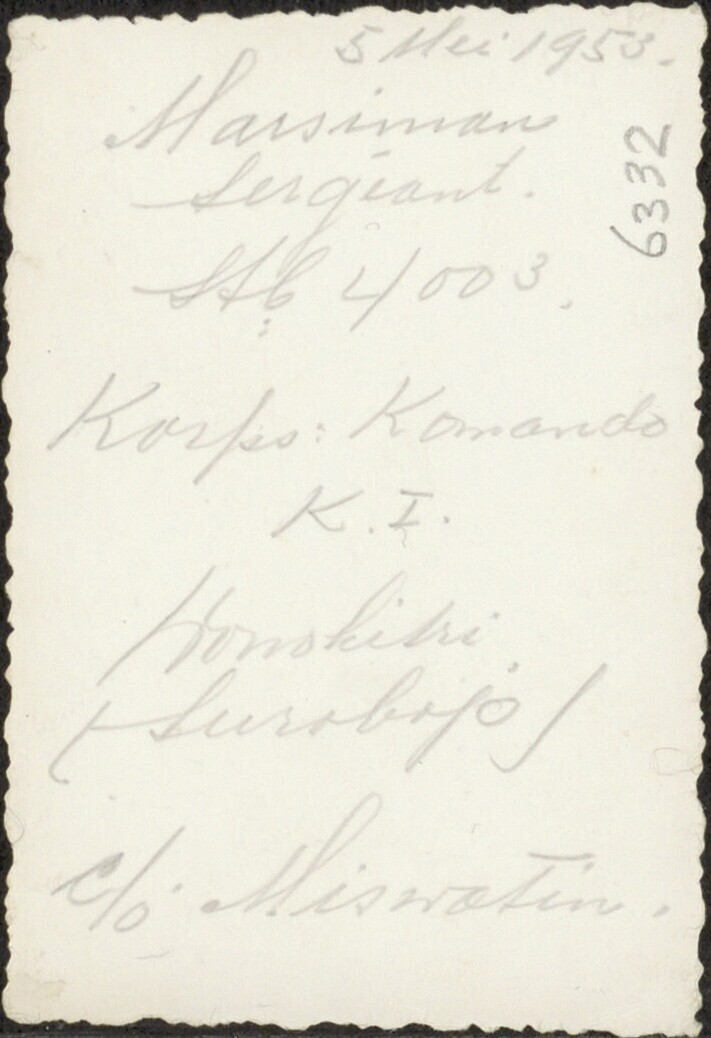 5 Mei 1953.
Marsiman
Sergeant.
Stb 4003.
Korps: Komando
K.I.
Wonokitri
(Surobojo)
c/o Miswatin.
6332